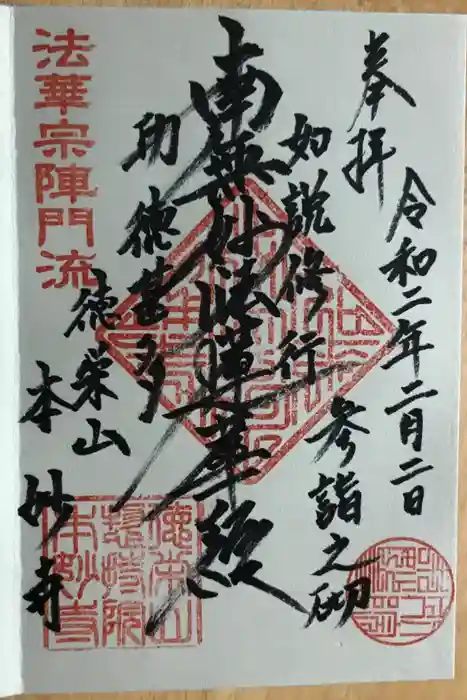 奉拝
令和二年二月二日
参詣之砌
如説修行
南無妙法蓮華経
功徳甚多
徳栄山
本妙寺
法華宗陣門流
徳栄山
揔持院
本妙寺